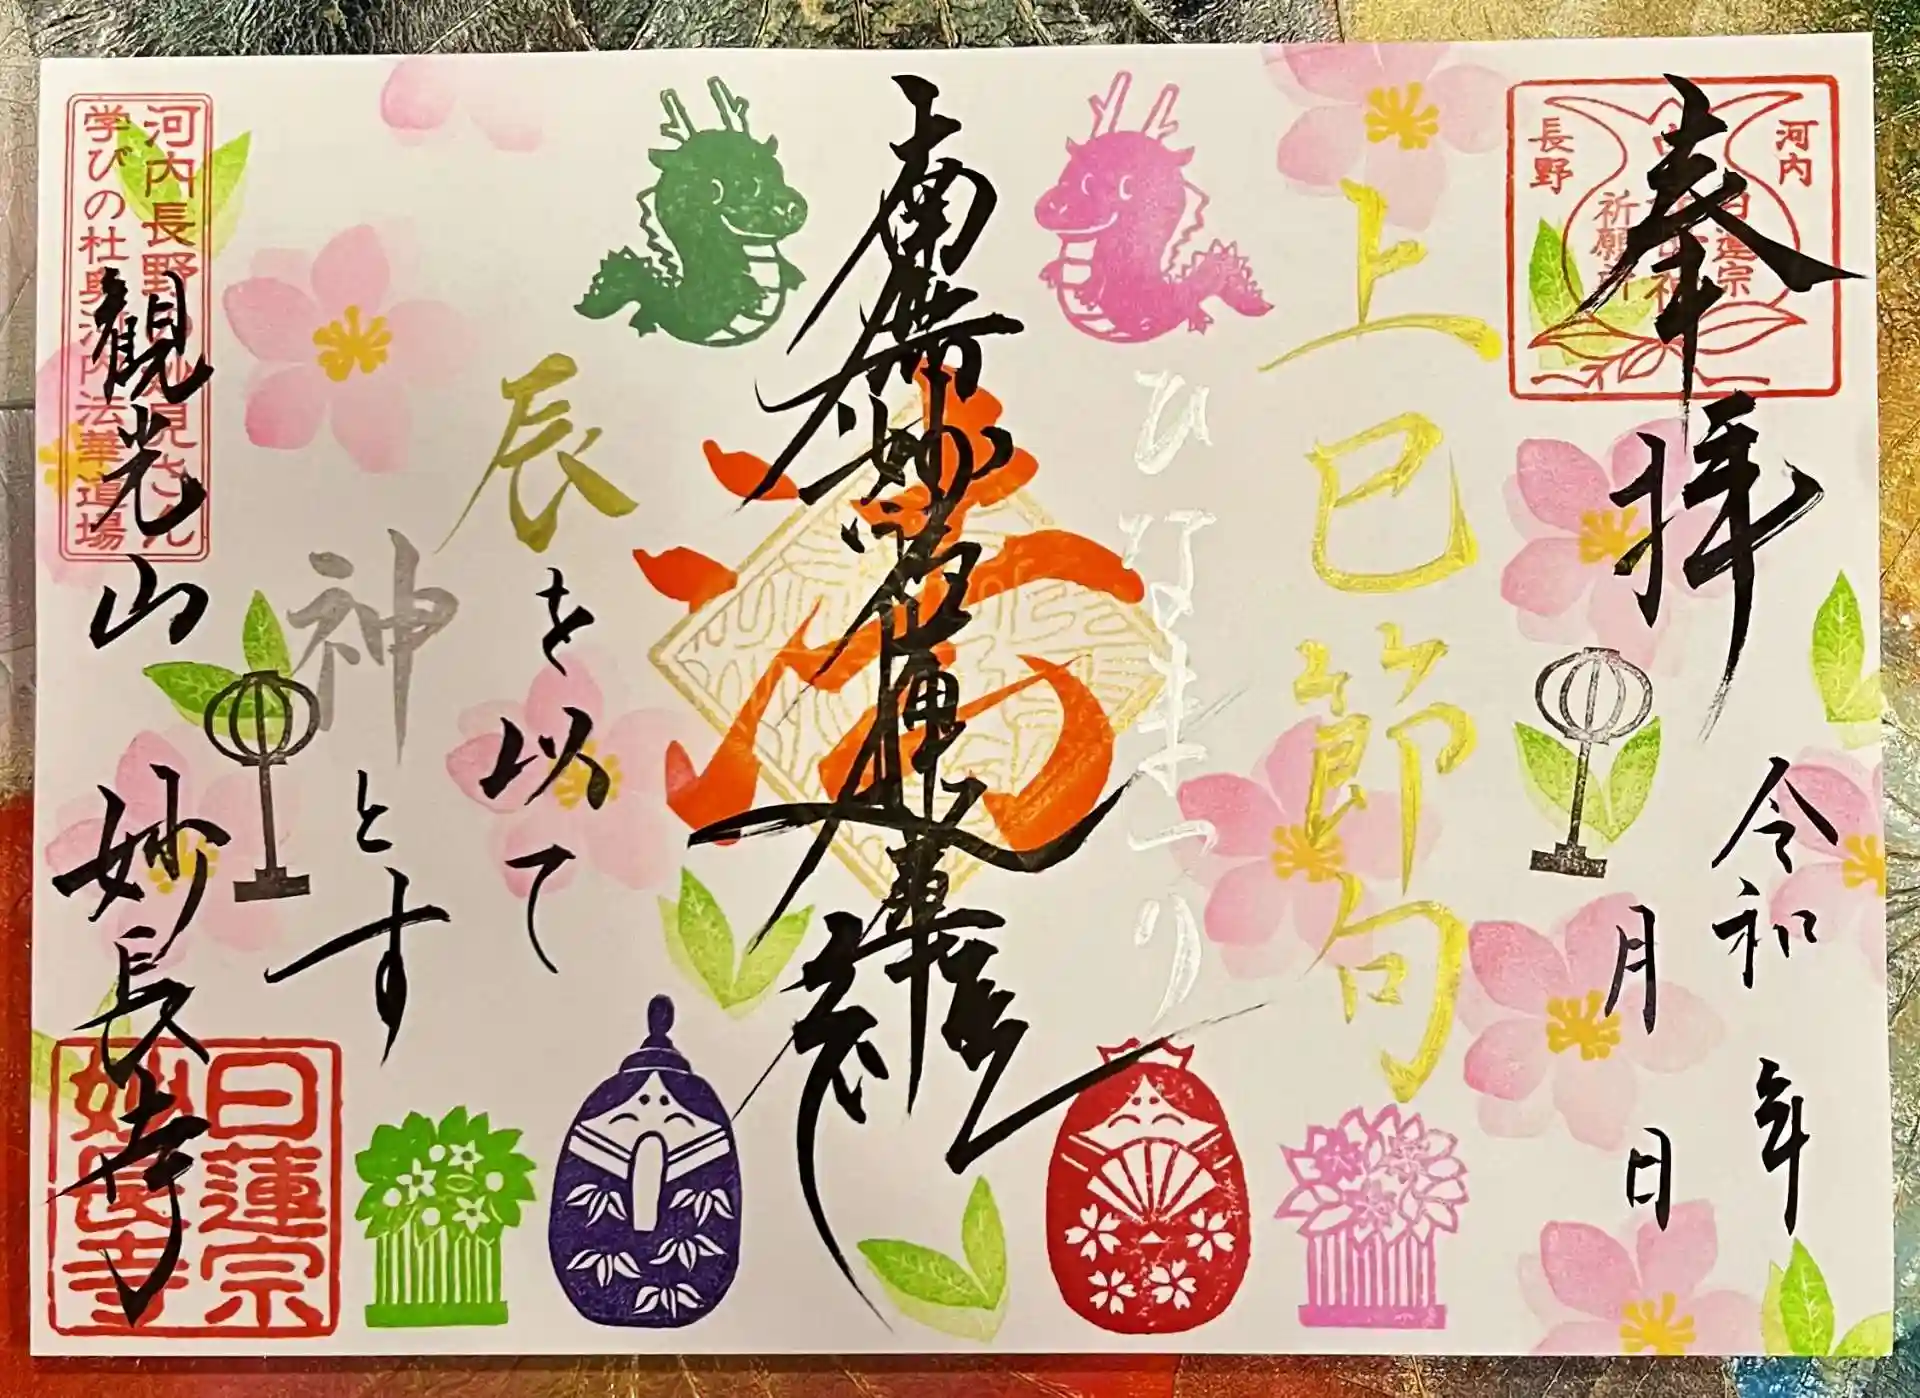 奉拝
河内
長野
日蓮宗
祈願所
令和 年
月 日
上巳節句
ひなまつり
南無妙法蓮華経
辰を以て
神とす
河内長野の妙見さん
学びの杜奥河内法華道場
観光山 妙長寺
日蓮宗
妙長寺